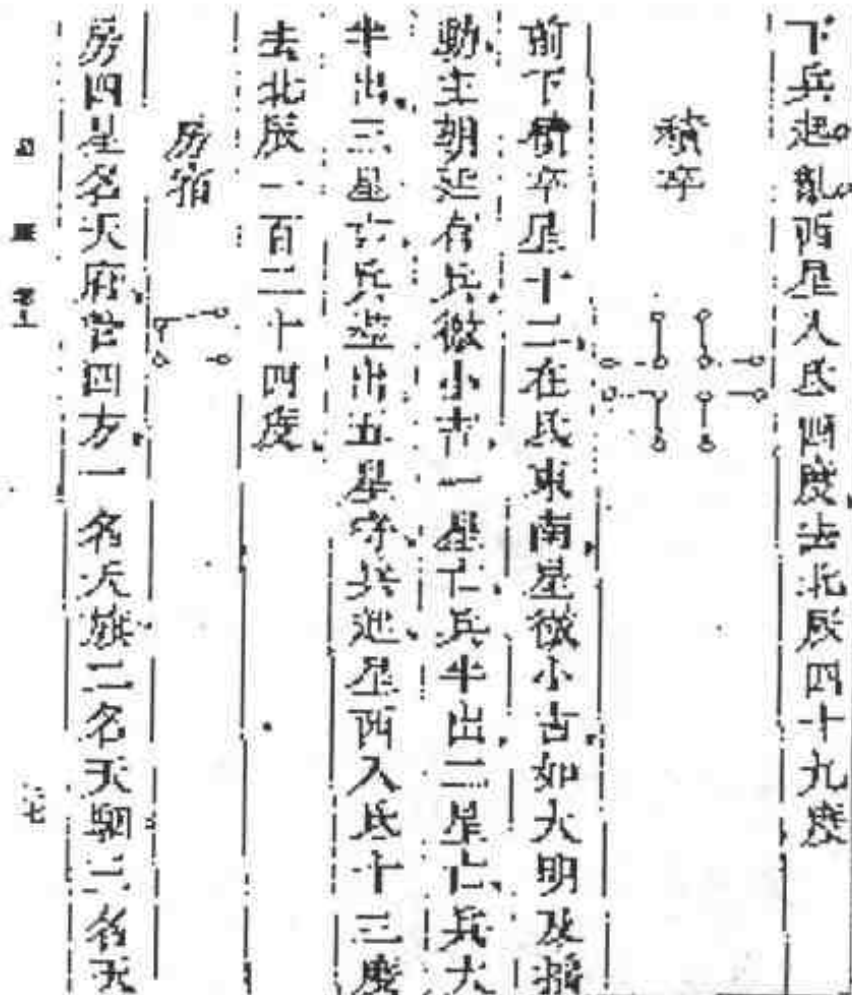 下兵起亂西星入氐四度去北辰四十九度
積卒
前下積卒星十二在氐東南星微小吉如大明及搖
動主朝廷有兵微小吉一星亡兵半出二星亡兵大
半出三星亡兵盡出五星守兵起星西入氐十三度
去北辰一百二十四度
房宿
房四星名天府管四方一名天旗二名天駟三名天
七